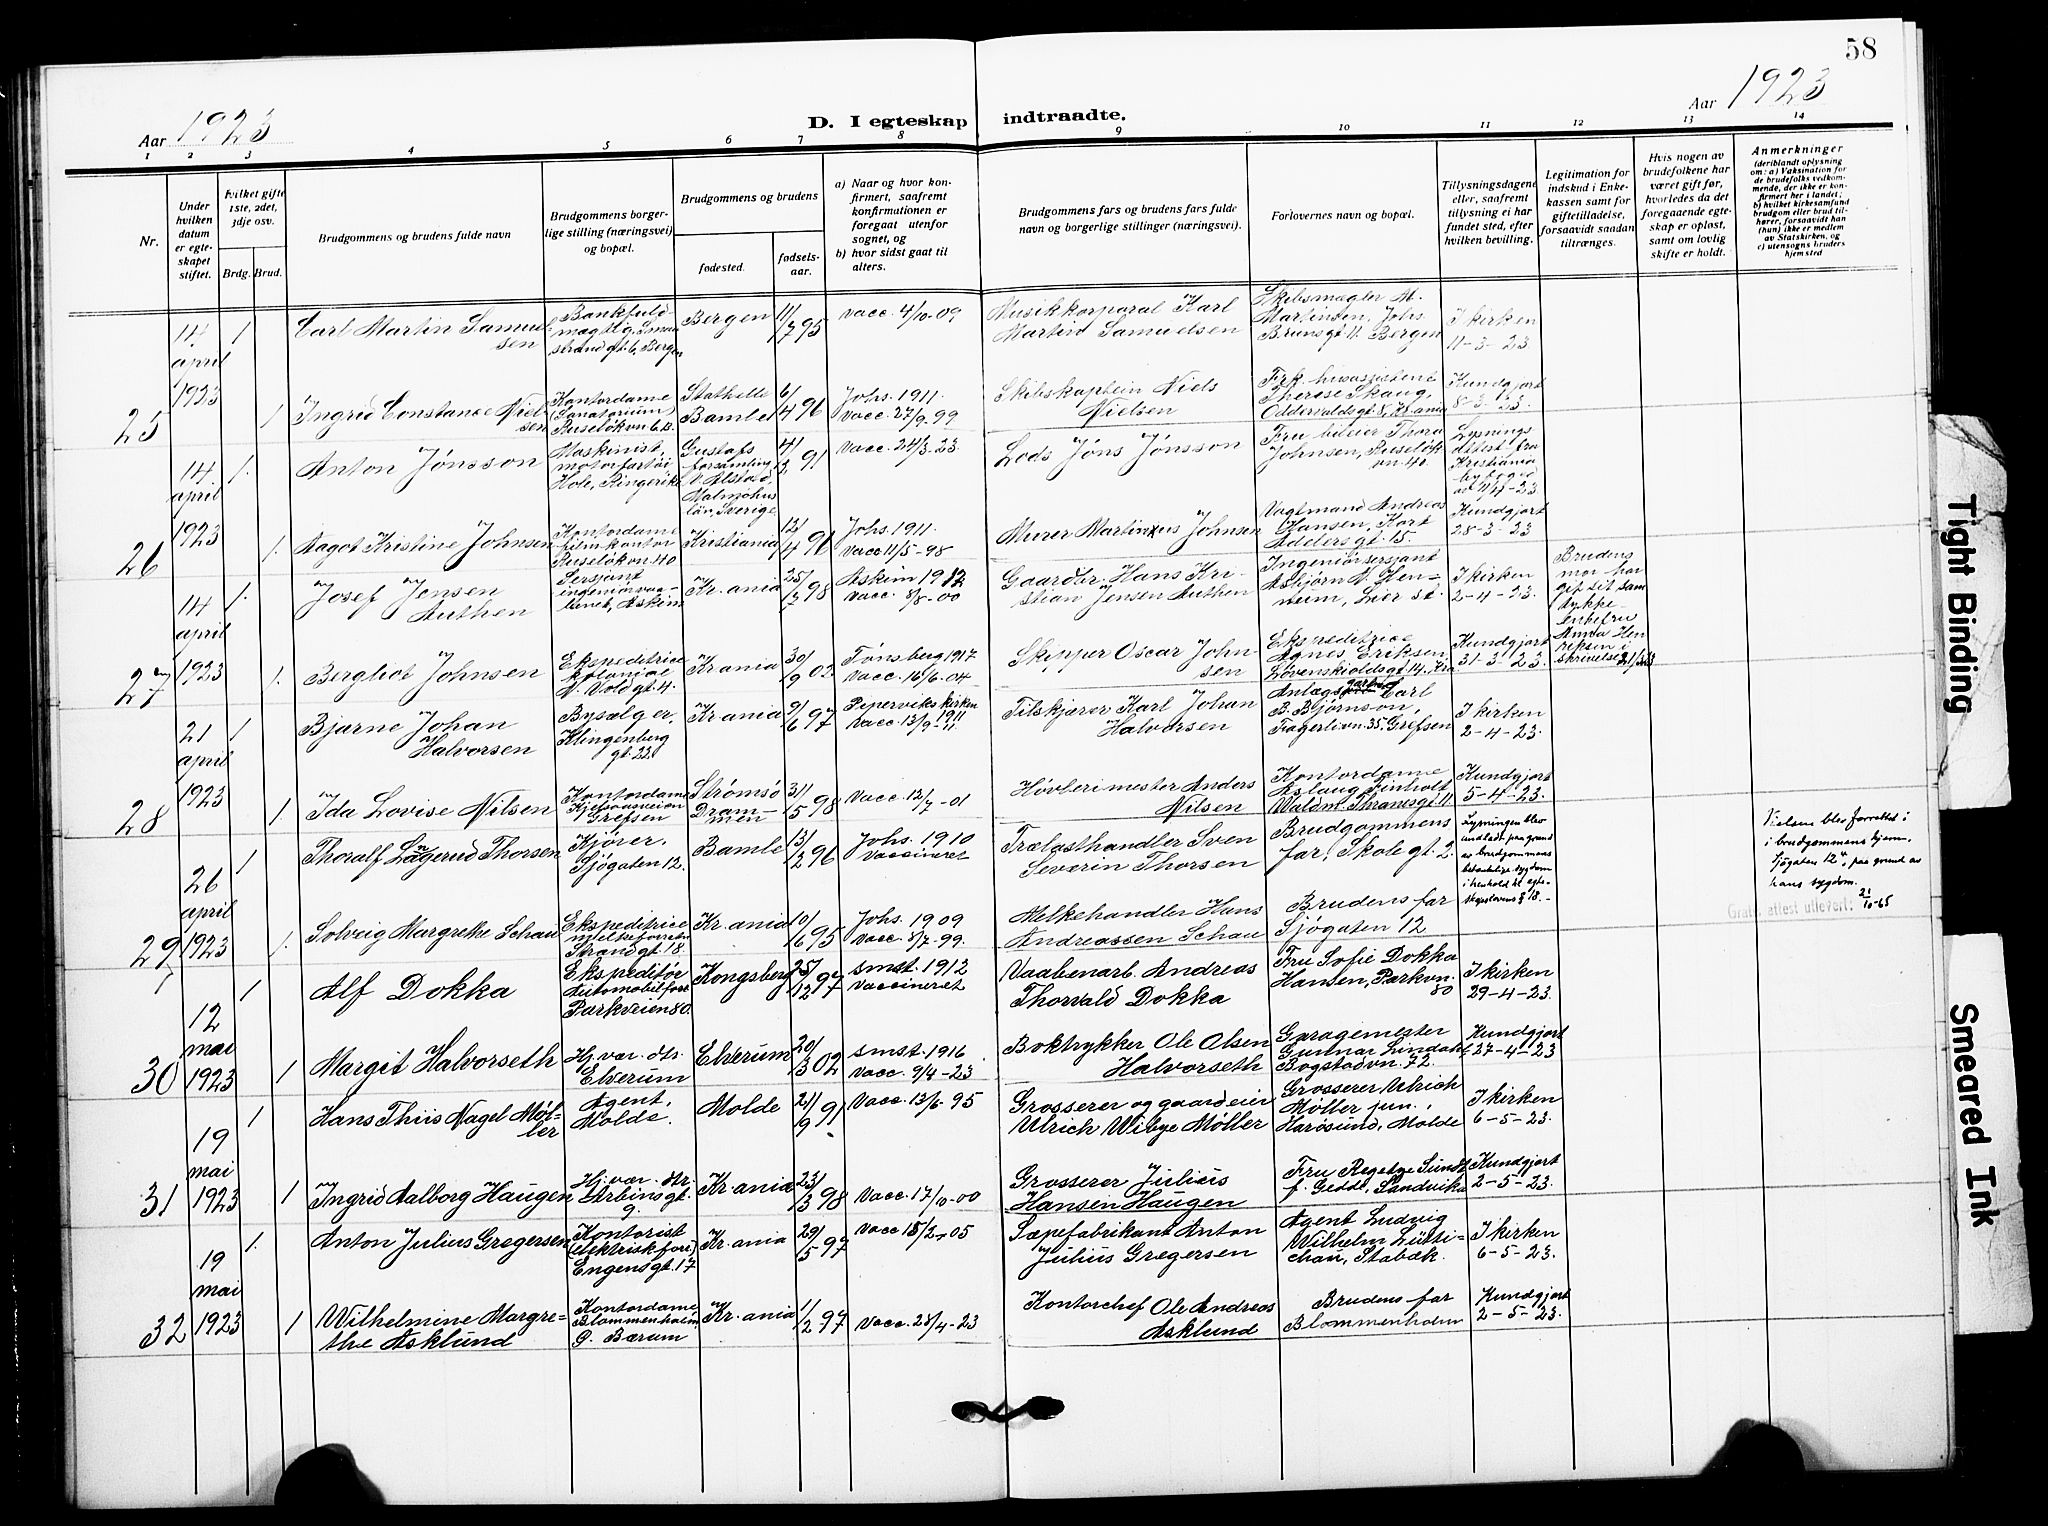 58
Aar 1923
D. I egteskap indtraadte.
Aar 1923
1 2 3 4 5 6 7 8 9 10 11 12 13 14
Nr.
Under hvilken datum er egteskapet stiftet.
Hvilket gifte 1ste, 2det, 3dje osv.
Brdg. Brud.
Brudgommens og brudens fulde navn
Brudgommens borgerlige stilling (næringsvei) og bopæl.
Brudgommens og brudens
fødested.
fødselsaar.
a) Naar og hvor konfirmert, saafremt konfirmationen er foregaat utenfor sognet, og
b) hvor sidst gaat til alters.
Brudgommens fars og brudens fars fulde navn og borgerlige stillinger (næringsvei).
Forlovernes navn og bopæl.
Tillysningsdagene eller, saafremt tillysning ei har fundet sted, efter hvilken bevilling.
Legitimation for indskud i Enkekassen samt for giftetilladelse, forsaavidt saadan tiltrænges.
Hvis nogen av brudefolkene har været gift før, hvorledes da det foregaaende egteskap er opløst, samt om lovlig skifte er holdt.
Anmerkninger
(deriblandt oplysning om: a) Vaksination for de brudefolks vedkommende, der ikke er konfirmert her i landet; b) hvilket kirkesamfund brudgom eller brud tilhører, forsaavidt han (hun) ikke er medlem av Statskirken, og c) utensogns bruders hjemsted
25
14 april 1923
1
Carl Martin Samuelsen
Bankfuldmægtig, Strandgt. 6, Bergen
Bergen
11/7 95
vacc. 4/10-09
Musikkorporal Karl Martin Samuelsen
Skibsmægler M. Martinsen, Johs Brunsgt 11. Bergen
I kirken 11-3-23
1
Ingrid Constance Nielsen
Kontordame (Sanatorium) Ruseløkvn 6B.
Stathelle Bamle
6/4 96
Johs. 1911.
Vacc. 27/9-99
Skibskaptein Niels Nielsen
Therese Skaug, Oddervaldsgt. 8, Kr.ania
Kundgjort 8-3-23.
26
14 april 1923
1.
Anton Jönsson
Maskinist, motorfartøi Hole, Ringerike
Gustafs forsamling V. Alstad, Malmöhus län, Sverige.
91
Vacc. 24/3-23.
Lods Jöns Jönsson
Fru Thora Johnsen, Ruseløkvn. 40
Lysningsattest fra Kristiania
1.
Aagot Kristine Johnsen
Kontordame filmkontor Ruseløkvn. 40
Kristiania
12/4 96
Johs. 1911.
Vacc 11/5-98
Murer Martinius Johnsen
Vagtmand Andreas Hansen, Kort Adelersgt. 15.
Kundgjort 28-3-23
27
14 april 1923
1.
Josef Jensen Authen
Sersjant ingeniørvaabenet, Askim
Kr.ania
25/7 98
Askim 1912
Vacc. 8/8-00
Gaardbr. Hans Kristian Jensen Authen
Ingeniørsersjant Asbjørn N. Henneim, Lier st.
I kirken 2-4-23.
Brudens mor har git sit samtykke. Enkefru Anna Henriksen i skrivelse 21/3-23
1.
Bergliot Johnsen
Ekspeditrice kolonial N. Voldgt. 4.
Kr.ania
30/9 02
Tønsberg 1917
Vacc. 16/6-04
Skipper Oscar Johnsen
Ekspeditrice Agnes Eriksen, Løvenskioldsgt. 14. Kra
Kundgjort 31-3-23.
28
21 april 1923
1
Bjarne Johan Halvorsen
Bysælger, Klingenberg gt. 22.
Kr.ania
9/6 97
Peperviks kirken 1911
Vacc. 13/9-11.
Filskjærer Karl Johan Halvorsen
Anlægsgartner Carl B. Bjørnson, Fagerlivn. 35, Grefsen
I kirken 2-4-23.
1
Ida Lovise Nilsen
Kontordame Kjelsaasveien Grefsen
Strømsø Drammen
31/5 98
Vacc. 12/7-01
Høvlerimester Anders Nilsen
Kontordame Aslaug Finholt Waldm. Thranesgt. 11
Kundgjort 5-4-23.
29
26 april 1923
1
Thoralf Langerud Thorsen
Kjører. Sjøgaten 12.
Bamle
13/12 96
Johs. 1910
Vaccineret
Trælasthandler Sven Severin Thorsen
Brudgommens far, Skolegt. 2.
Lysningen blev undladt paa grund av brudgommens betænkelige sygdom i henhold til egteskapslovens § 18.
Vielsen blev forrettet i brudgommens hjem. Sjøgaten 12", paa grund av hans sygdom.
Gratis attest utlevert: 21/10-65
1.
Solveig Margrethe Schau
Ekspeditrice melkeforretn Strandgt. 18.
Kr.ania
10/6 95
Johs. 1909
Vacc. 8/7-99.
Melkehandler Hans Andreassen Schau
Brudens far Sjøgaten 12
30
12 mai 1923
1
Alf Dokka
Ekspeditør Automobilforr Parkveien 80.
Kongsberg
25/12 97
smst. 1912
Vaccineret
Vaabenarb. Andreas Thorvald Dokka
Fru Sofie Dokka Hansen, Parkvn. 80
I kirken 29-4-23.
1
Margit Halvorseth
Hj.vær. dtr. Elverum
Elverum
20/3 02
smst. 1916
Vacc. 9/4-23
Boktrykker Ole Olsen Halvorseth
Garagemester Gunnar Lindahl Bogstadvn. 72.
Kundgjort 27-4-23
31
19 mai 1923
1
Hans Thiis Nagel Møller
Agent, Molde.
Molde
21/9 91
Vacc. 13/6-95
Grosserer og gaardeier Ulrich Wibye Møller
Grosserer Ulrich Møller jun., Harøsund, Molde
I kirken 6-5-23.
1
Ingrid Aalborg Haugen
Hj.vær. dtr. Arbinsgt. 9.
Kr.ania
23/3 98
Vacc. 17/10-00
Grosserer Julius Hansen Haugen
Fru Regetye Sundt f. Gedde, Sandvika
Kundgjort 2-5-23.
32
19 mai 1923
1.
Anton Julius Gregersen
Kontorist (elektrisk forr.) Engensgt. 17
Kr.ania
29/5 97
Vacc 18/2-05
Sæpefabrikant Anton Julius Gregersen
Agent Ludvig Wilhelm Lüttichau, Stabæk.
I kirken 6-5-23.
1
Wilhelmine Margrethe Asklund
Kontordame Blommenholm Ø. Bærum
Kr.ania
1/2 97
Vacc. 25/4-23
Kontorchef Ole Andreas Asklund
Brudens far Blommenholm
Kundgjort 2-5-23.
Tight Binding
Smeared Ink